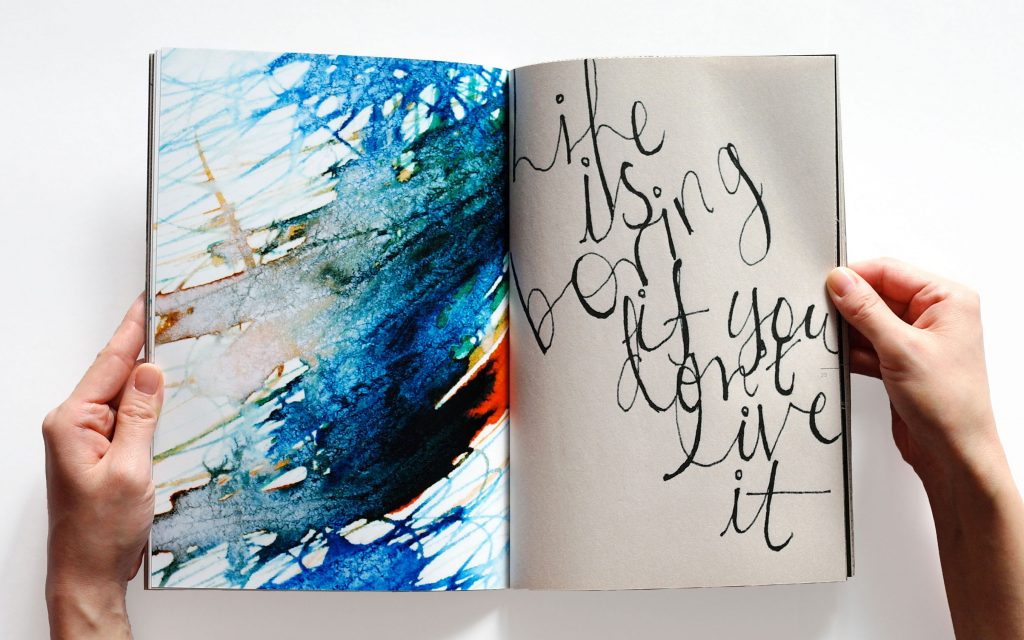 life
is
boring
if you
dont
live
it